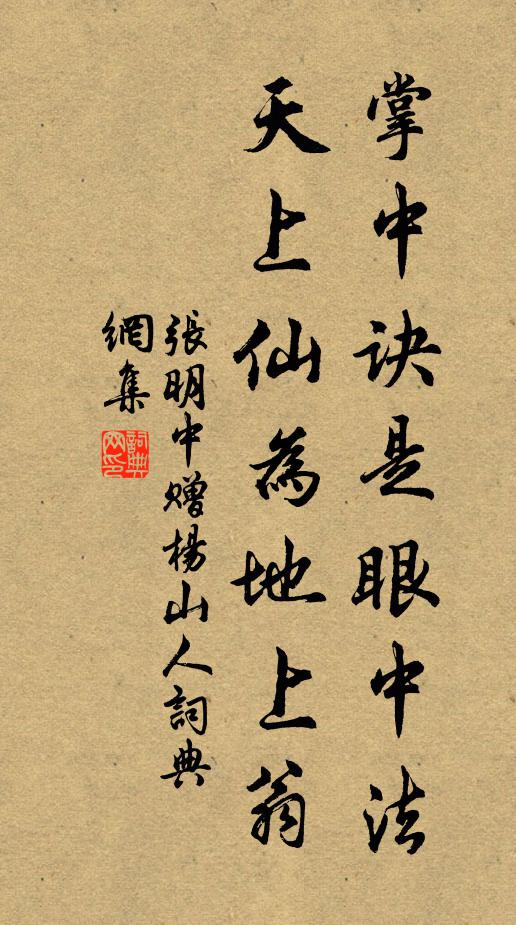 掌中诀是眼中法
天上仙為地上翁
張明中赠楊山人詞典
網集
詞典
网印